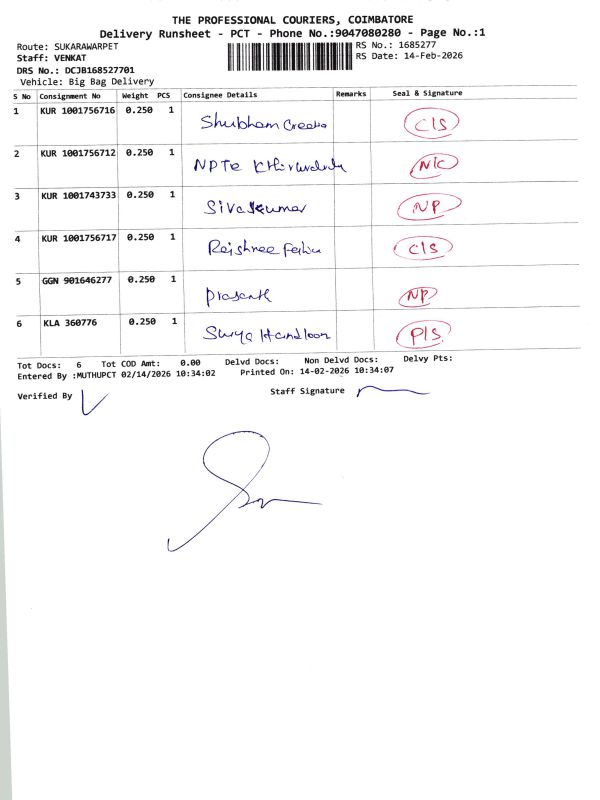 THE PROFESSIONAL COURIERS, COIMBATORE
Delivery Runsheet - PCT - Phone No.:9047080280 - Page No.:1
Route: SUKARAWARPET RS No.: 1685277
Staff: VENKAT RS Date: 14-Feb-2026
DRS No.: DCJB168527701
Vehicle: Big Bag Delivery
S No Consignment No Weight PCS Consignee Details Remarks Seal & Signature
1 KUR 1001756716 0.250 1 Shubham C/S
2 KUR 1001756712 0.250 1 NPTE N/C
3 KUR 1001743733 0.250 1 Sivakumar NP
4 KUR 1001756717 0.250 1 C/S
5 GGN 901646277 0.250 1 Prasanth NP
6 KLA 360776 0.250 1 Surya Handloom P/S
Tot Docs: 6 Tot COD Amt: 0.00 Delvd Docs: Non Delvd Docs: Delvy Pts:
Entered By :MUTHUPCT 02/14/2026 10:34:02 Printed On: 14-02-2026 10:34:07
Verified By Staff Signature